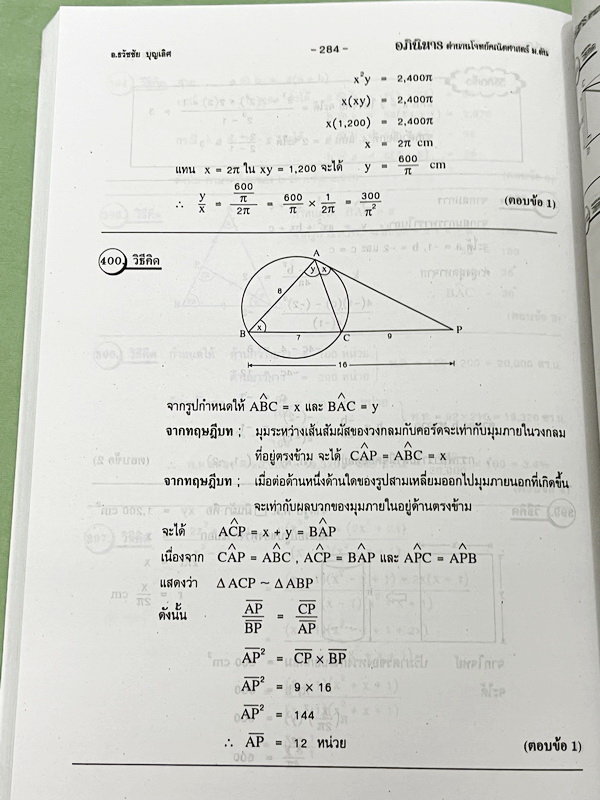 อ.ธวัชชัย บุญเลิศ
- 284 -
อภินิหาร ตำนานโจทย์คณิตศาสตร์ ม.ต้น
x²y = 2,400π
x(xy) = 2,400π
x(1,200) = 2,400π
x = 2π cm
แทน x = 2π ใน xy = 1,200 จะได้ y = 600/π cm
∴ y/x = (600/π)/2π = 600/π × 1/2π = 300/π² (ตอบข้อ 1)
400. วิธีคิด
A
y x
8
B x 7 C 9 P
16
จากรูปกำหนดให้ AB̂C = x และ BÂC = y
จากทฤษฎีบท ; มุมระหว่างเส้นสัมผัสของวงกลมกับคอร์ดจะเท่ากับมุมภายในวงกลม
ที่อยู่ตรงข้าม จะได้ CÂP = AB̂C = x
จากทฤษฎีบท ; เมื่อต่อด้านหนึ่งด้านใดของรูปสามเหลี่ยมออกไปมุมภายนอกที่เกิดขึ้น
จะเท่ากับผลบวกของมุมภายในอยู่ด้านตรงข้าม
จะได้ AĈP = x + y = BÂP
เนื่องจาก CÂP = AB̂C , AĈP = BÂP และ AP̂C = AP̂B
แสดงว่า Δ ACP ~ Δ ABP
ดังนั้น A̅P̅/B̅P̅ = C̅P̅/A̅P̅
A̅P̅² = C̅P̅ × B̅P̅
A̅P̅² = 9 × 16
A̅P̅² = 144
∴ A̅P̅ = 12 หน่วย (ตอบข้อ 1)